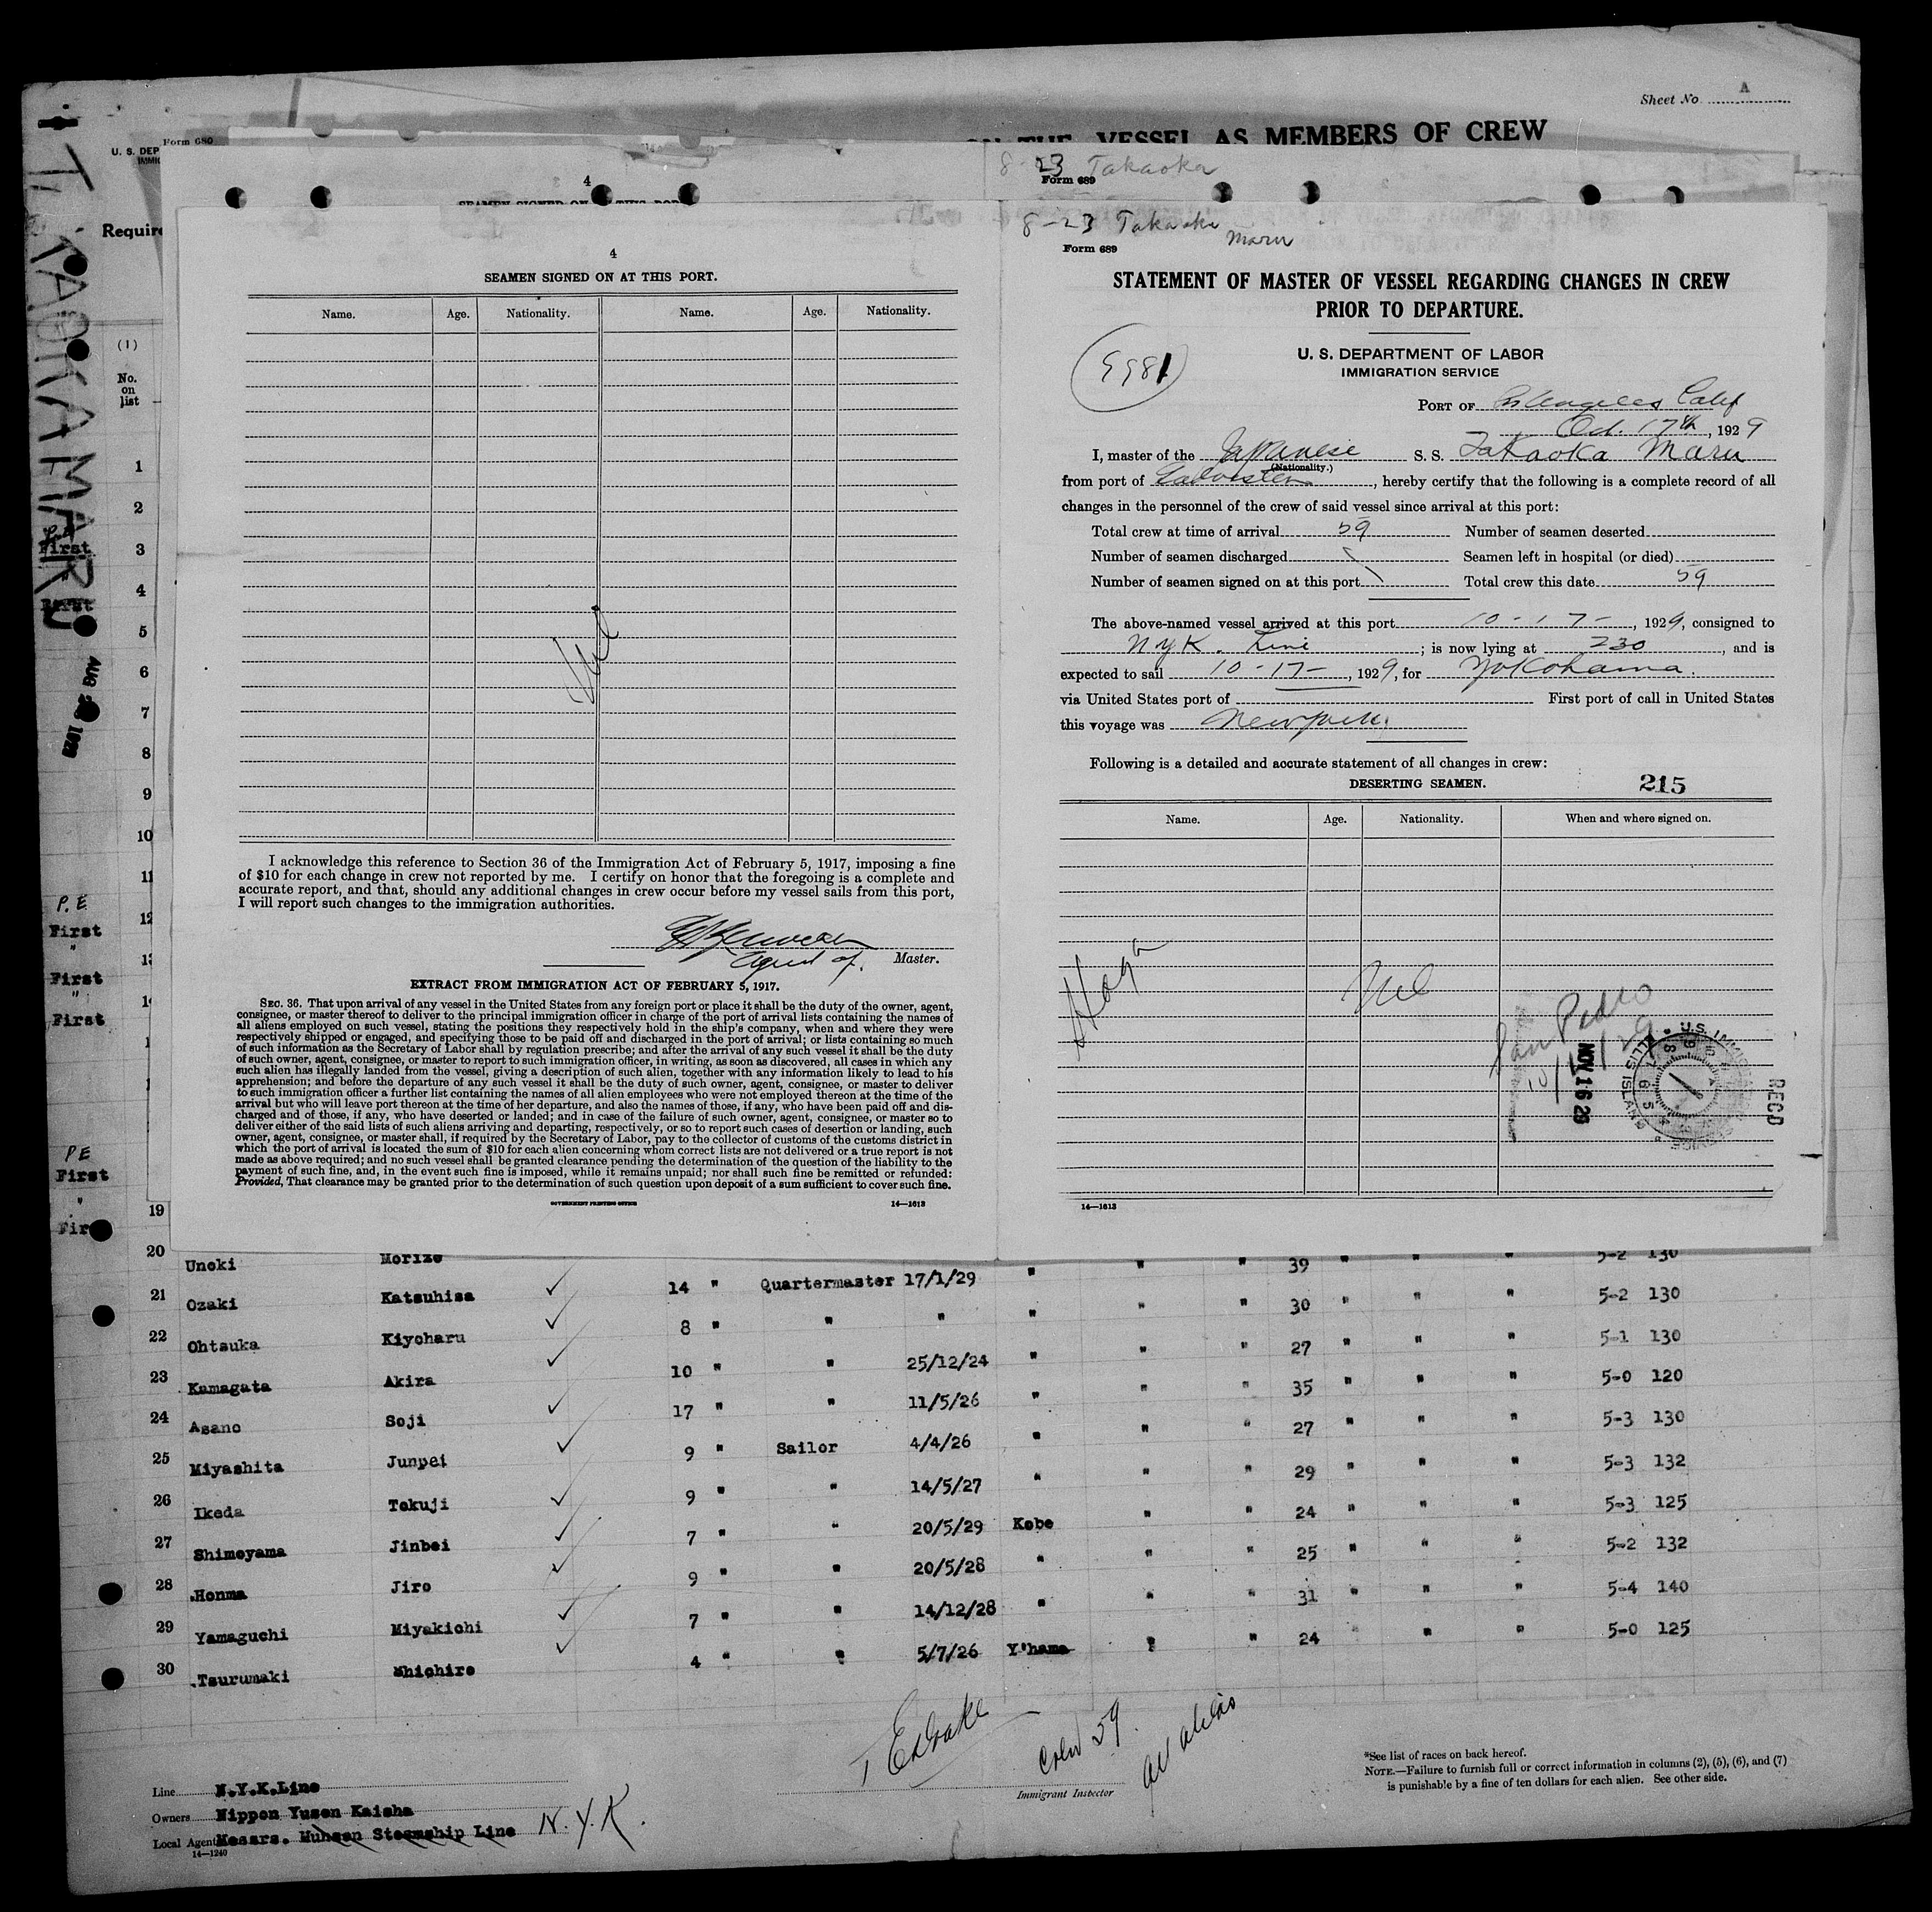 Sheet No. A
VESSEL AS MEMBERS OF CREW
Form 680
U. S. DEP
IMMIG
Require
TAOKA MARU
(1)
No.
on
list
8-23 Takaoka
Form 689
4
SEAMEN SIGNED ON AT THIS POR
4
SEAMEN SIGNED ON AT THIS PORT.
Name. Age. Nationality. Name. Age. Nationality.
Nil
I acknowledge this reference to Section 36 of the Immigration Act of February 5, 1917, imposing a fine
of $10 for each change in crew not reported by me. I certify on honor that the foregoing is a complete and
accurate report, and that, should any additional changes in crew occur before my vessel sails from this port,
I will report such changes to the immigration authorities.
Master.
EXTRACT FROM IMMIGRATION ACT OF FEBRUARY 5, 1917.
SEC. 36. That upon arrival of any vessel in the United States from any foreign port or place it shall be the duty of the owner, agent,
consignee, or master thereof to deliver to the principal immigration officer in charge of the port of arrival lists containing the names of
all aliens employed on such vessel, stating the positions they respectively hold in the ship's company, when and where they were
respectively shipped or engaged, and specifying those to be paid off and discharged in the port of arrival; or lists containing so much
of such information as the Secretary of Labor shall by regulation prescribe; and after the arrival of any such vessel it shall be the duty
of such owner, agent, consignee, or master to report to such immigration officer, in writing, as soon as discovered, all cases in which any
such alien has illegally landed from the vessel, giving a description of such alien, together with any information likely to lead to his
apprehension; and before the departure of any such vessel it shall be the duty of such owner, agent, consignee, or master to deliver
to such immigration officer a further list containing the names of all alien employees who were not employed thereon at the time of the
arrival but who will leave port thereon at the time of her departure, and also the names of those, if any, who have been paid off and dis-
charged and of those, if any, who have deserted or landed; and in case of the failure of such owner, agent, consignee, or master so to
deliver either of the said lists of such aliens arriving and departing, respectively, or so to report such cases of desertion or landing, such
owner, agent, consignee, or master shall, if required by the Secretary of Labor, pay to the collector of customs of the customs district in
which the port of arrival is located the sum of $10 for each alien concerning whom correct lists are not delivered or a true report is not
made as above required; and no such vessel shall be granted clearance pending the determination of the question of the liability to the
payment of such fine, and, in the event such fine is imposed, while it remains unpaid; nor shall such fine be remitted or refunded:
Provided, That clearance may be granted prior to the determination of such question upon deposit of a sum sufficient to cover such fine.
GOVERNMENT PRINTING OFFICE 14—1613
8-23 Takaoka Maru
Form 689
STATEMENT OF MASTER OF VESSEL REGARDING CHANGES IN CREW
PRIOR TO DEPARTURE.
9981
U. S. DEPARTMENT OF LABOR
IMMIGRATION SERVICE
PORT OF Los Angeles Calif
Oct. 17th, 1929
I, master of the Japanese S. S. Takaoka Maru
(Nationality.)
from port of Galveston, hereby certify that the following is a complete record of all
changes in the personnel of the crew of said vessel since arrival at this port:
Total crew at time of arrival 59 Number of seamen deserted
Number of seamen discharged Seamen left in hospital (or died)
Number of seamen signed on at this port Total crew this date 59
The above-named vessel arrived at this port 10-17-, 1929, consigned to
NYK. Line; is now lying at 230, and is
expected to sail 10-17-, 1929, for Yokohama.
via United States port of First port of call in United States
this voyage was New York.
Following is a detailed and accurate statement of all changes in crew:
DESERTING SEAMEN. 215
Name. Age. Nationality. When and where signed on.
Nil
San Pedro
NOV 16 29
REC'D
14—1613
1
2
First 3
4
First 5
6
7
8
9
10
11
P. E
First
"
First
"
First
PE
First
"
19
20 Unoki Morizo 39 " " " 5-2 130
21 Ozaki Katsuhisa 14 " Quartermaster 17/1/29 " " " 30 " " " 5-2 130
22 Ohtsuka Kiyoharu 8 " " " " " " 27 " " " 5-1 130
23 Kamagata Akira 10 " " 25/12/24 " " " 35 " " " 5-0 120
24 Asano Soji 17 " " 11/5/26 " " " 27 " " " 5-3 130
25 Miyashita Junpei 9 " Sailor 4/4/26 " " " 29 " " " 5-3 132
26 Ikeda Tokuji 9 " " 14/5/27 " " " 24 " " " 5-3 125
27 Shimoyama Jinbei 7 " " 20/5/29 Kobe " " 25 " " " 5-2 132
28 Honma Jiro 9 " " 20/5/28 " " " 31 " " " 5-4 140
29 Yamaguchi Miyakichi 7 " " 14/12/28 " " " 24 " " " 5-0 125
30 Tsurumaki Shichiro 4 " " 5/7/26 Y'hama
Crew 59
Immigrant Inspector
*See list of races on back hereof.
NOTE.—Failure to furnish full or correct information in columns (2), (5), (6), and (7)
is punishable by a fine of ten dollars for each alien. See other side.
Line N.Y.K.Line
Owners Nippon Yusen Kaisha
Local Agent Messrs. Munson Steamship Line N.Y.K.
14—1240